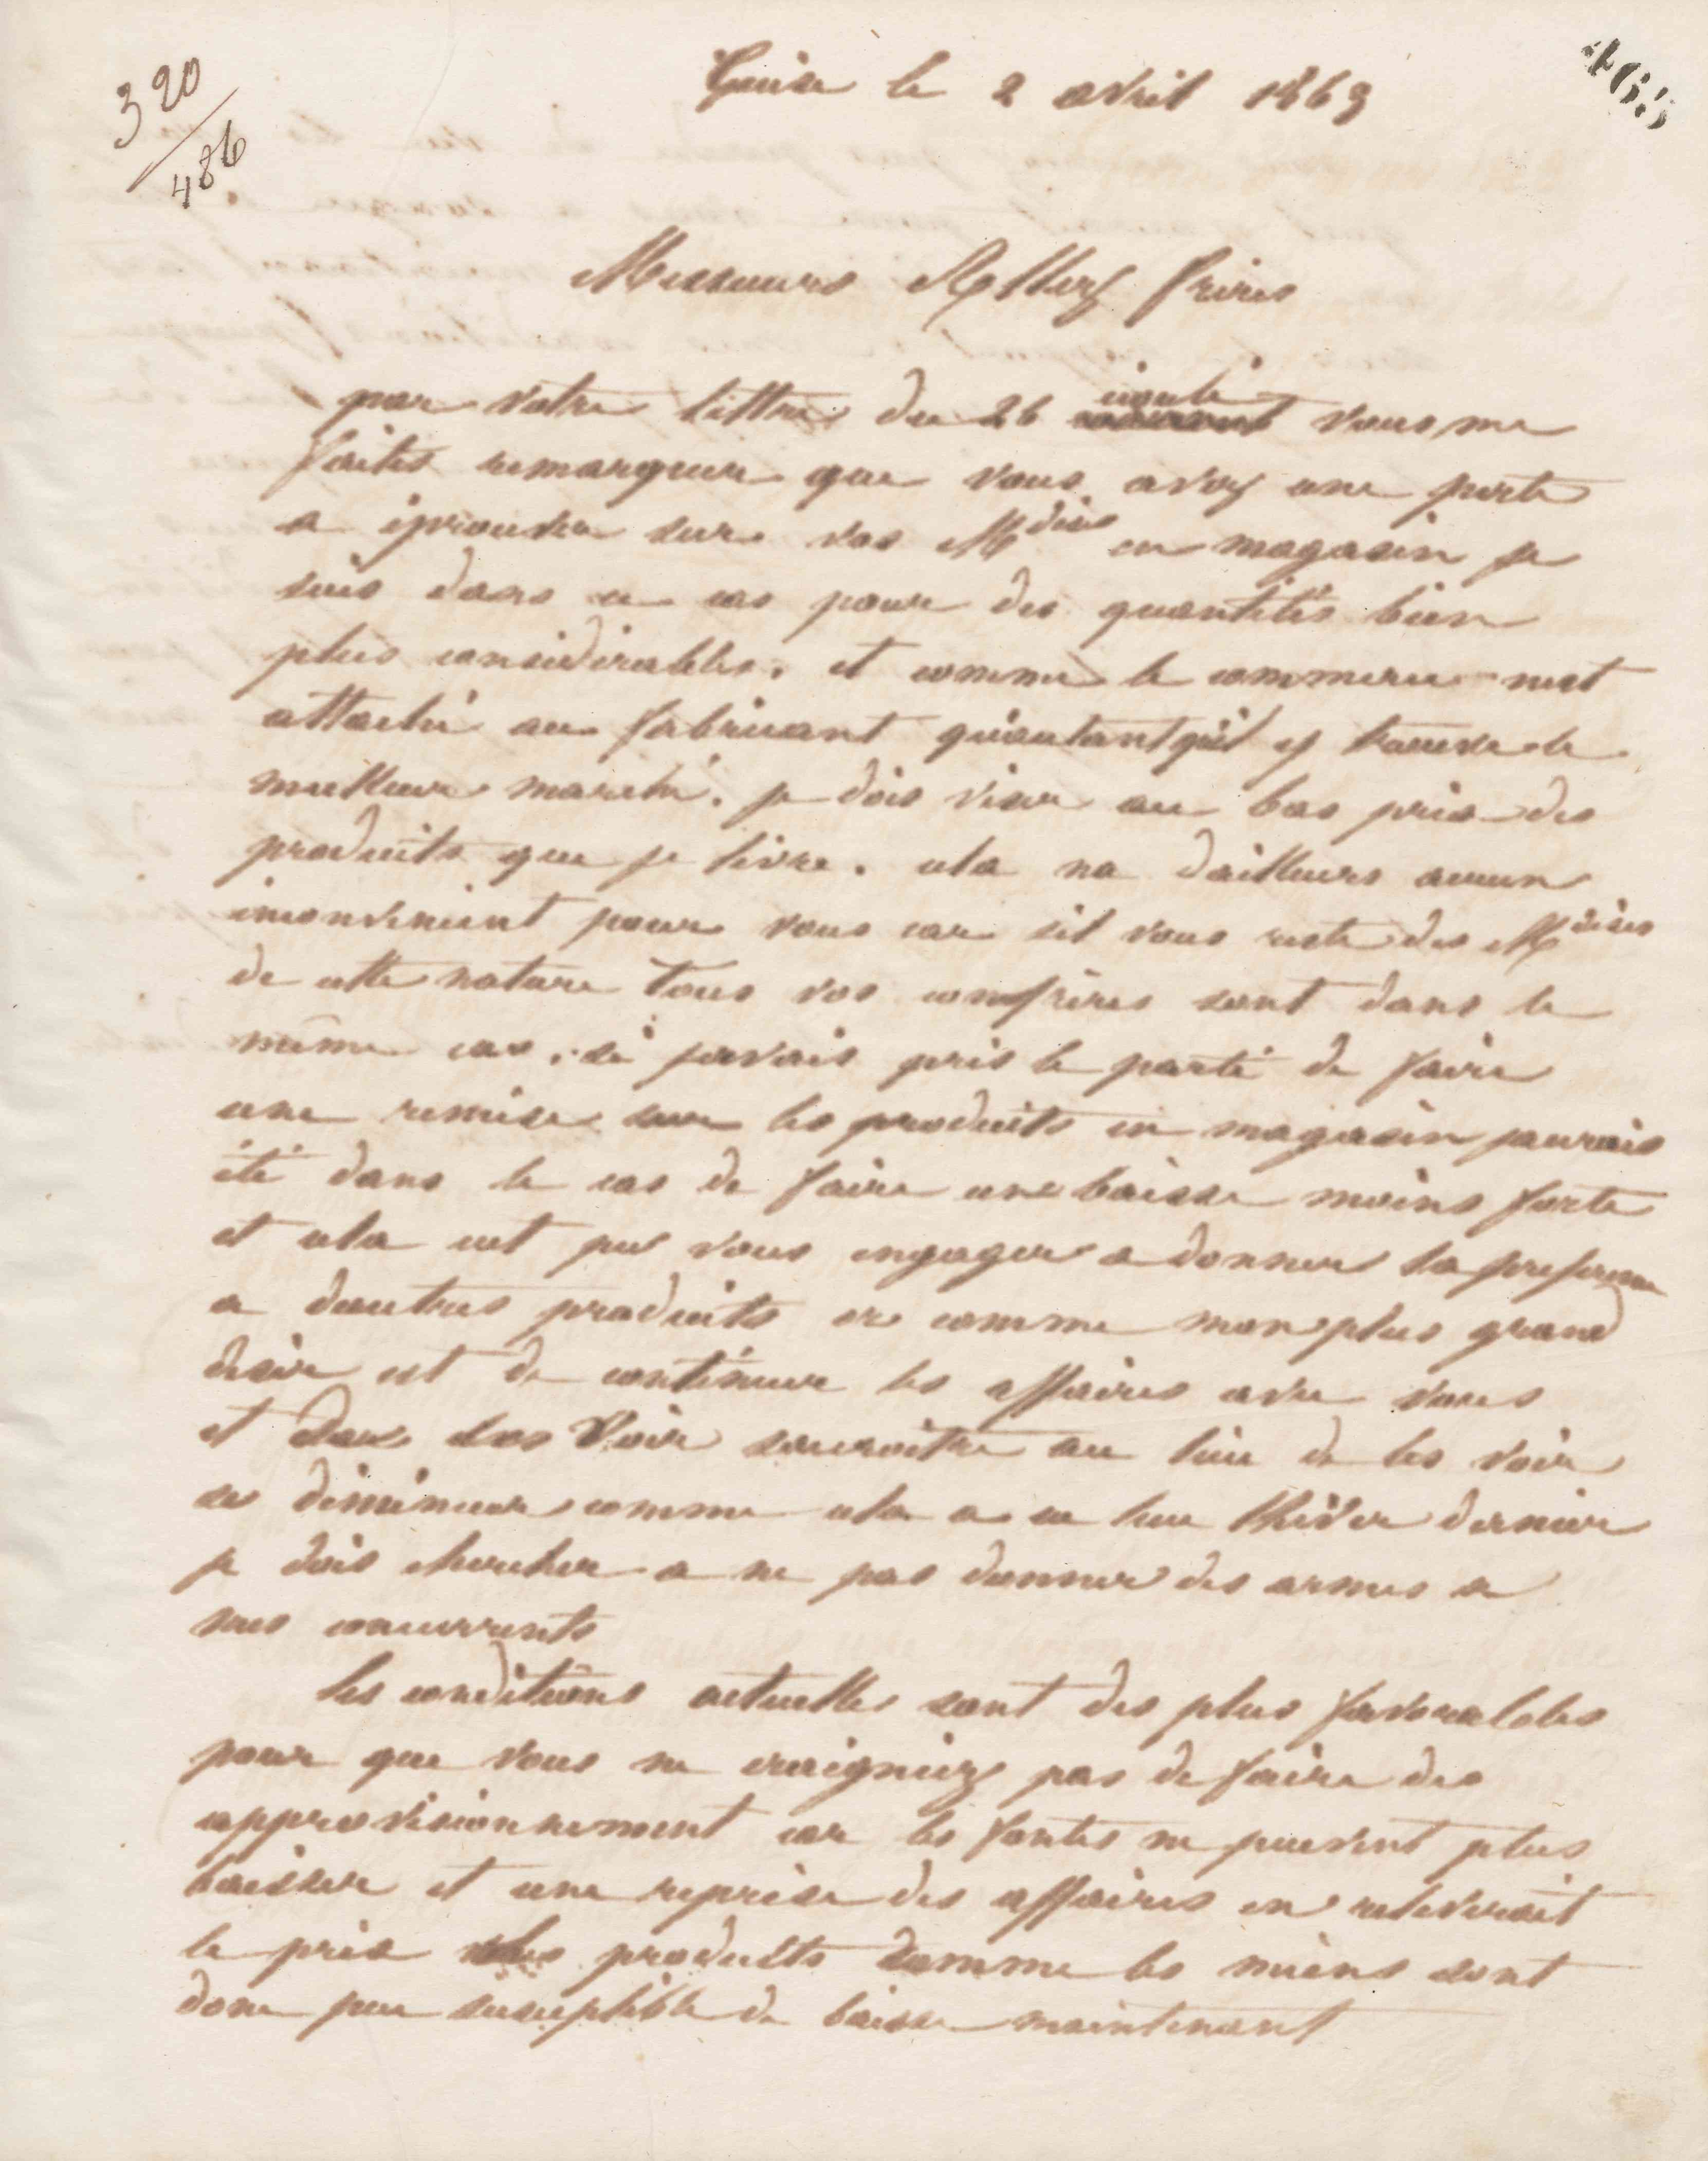 320
486
465
Guise le 2 avril 1863
Messieurs frères
par votre lettre du 26 écoulé vous me
faites remarquer que vous avez une perte
a éprouver sur vos Mdises en magasin je
suis dans ce cas pour des quantités bien
plus considérables. et comme le commerce nest
attaché au fabricant qu'autant qu'il y trouve le
meilleur marché. je dois viser au bas prix des
produits que je livre. cela na dailleurs aucun
inconvenient pour vous car sil vous reste des Mdises
de cette nature tous vos confrères sont dans le
même cas. si javais pris le parti de faire
une remise sur les produits en magasin jaurais
été dans le cas de faire une baisse moins forte
et cela eut pu vous engager a donner la preference
a dautres produits or comme mon plus grand
desir est de continuer les affaires avec vous
et de les voir au lieu de les voir
se diminuer comme cela a eu lieu lhiver dernier
je dois chercher a ne pas donner des armes a
mes concurrents
les conditions actuelles sont des plus favorables
pour que vous ne craigniez pas de faire des
approvisionnement car les fontes ne peuvent plus
baisser et une reprise des affaires en releverait
le prix produits comme les miens sont
donc peu susceptible de baisse maintenant